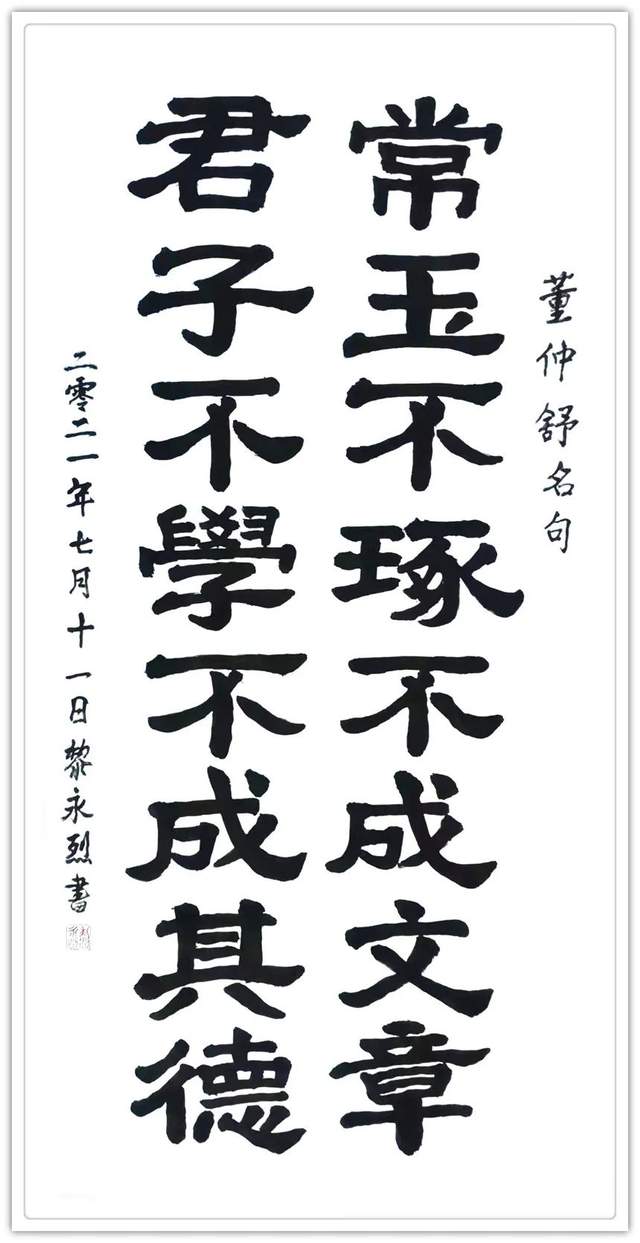 董仲舒名句
常玉不琢不成文章
君子不學不成其德
二零二一年七月十一日黎永烈書